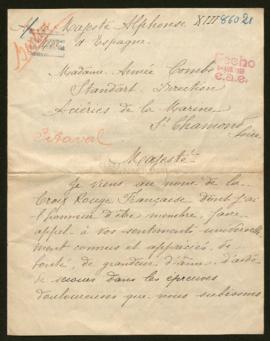 Sa Majesté Alphonse XIII 8602
d'Espagne
Fecho
c.a.e.
Madame Aimée Combe
Standart Direction
Aciéries de la Marine
St Chamond
Loire
Pitaval
Majesté
Je viens au nom de la
Croix Rouge Française dont j'ai
l'honneur d'être membre, faire
appel à vos sentiments universelle
ment connus et appréciés de
bonté, de grandeur d'âme, d'aide
de secours dans les épreuves
douloureuses que nous subissons